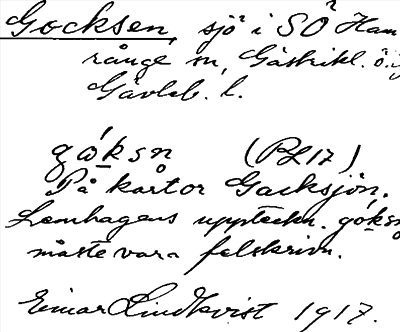 Gocksen, sjö i SÖ Ham
rånge sn, Gästrikl. ö.
Gävleb. l.
(BL 17)
På kartor Gacksjön.
Lenhagens uppteckn.
måste vara felskrivn.
Einar Lindkvist 1917.